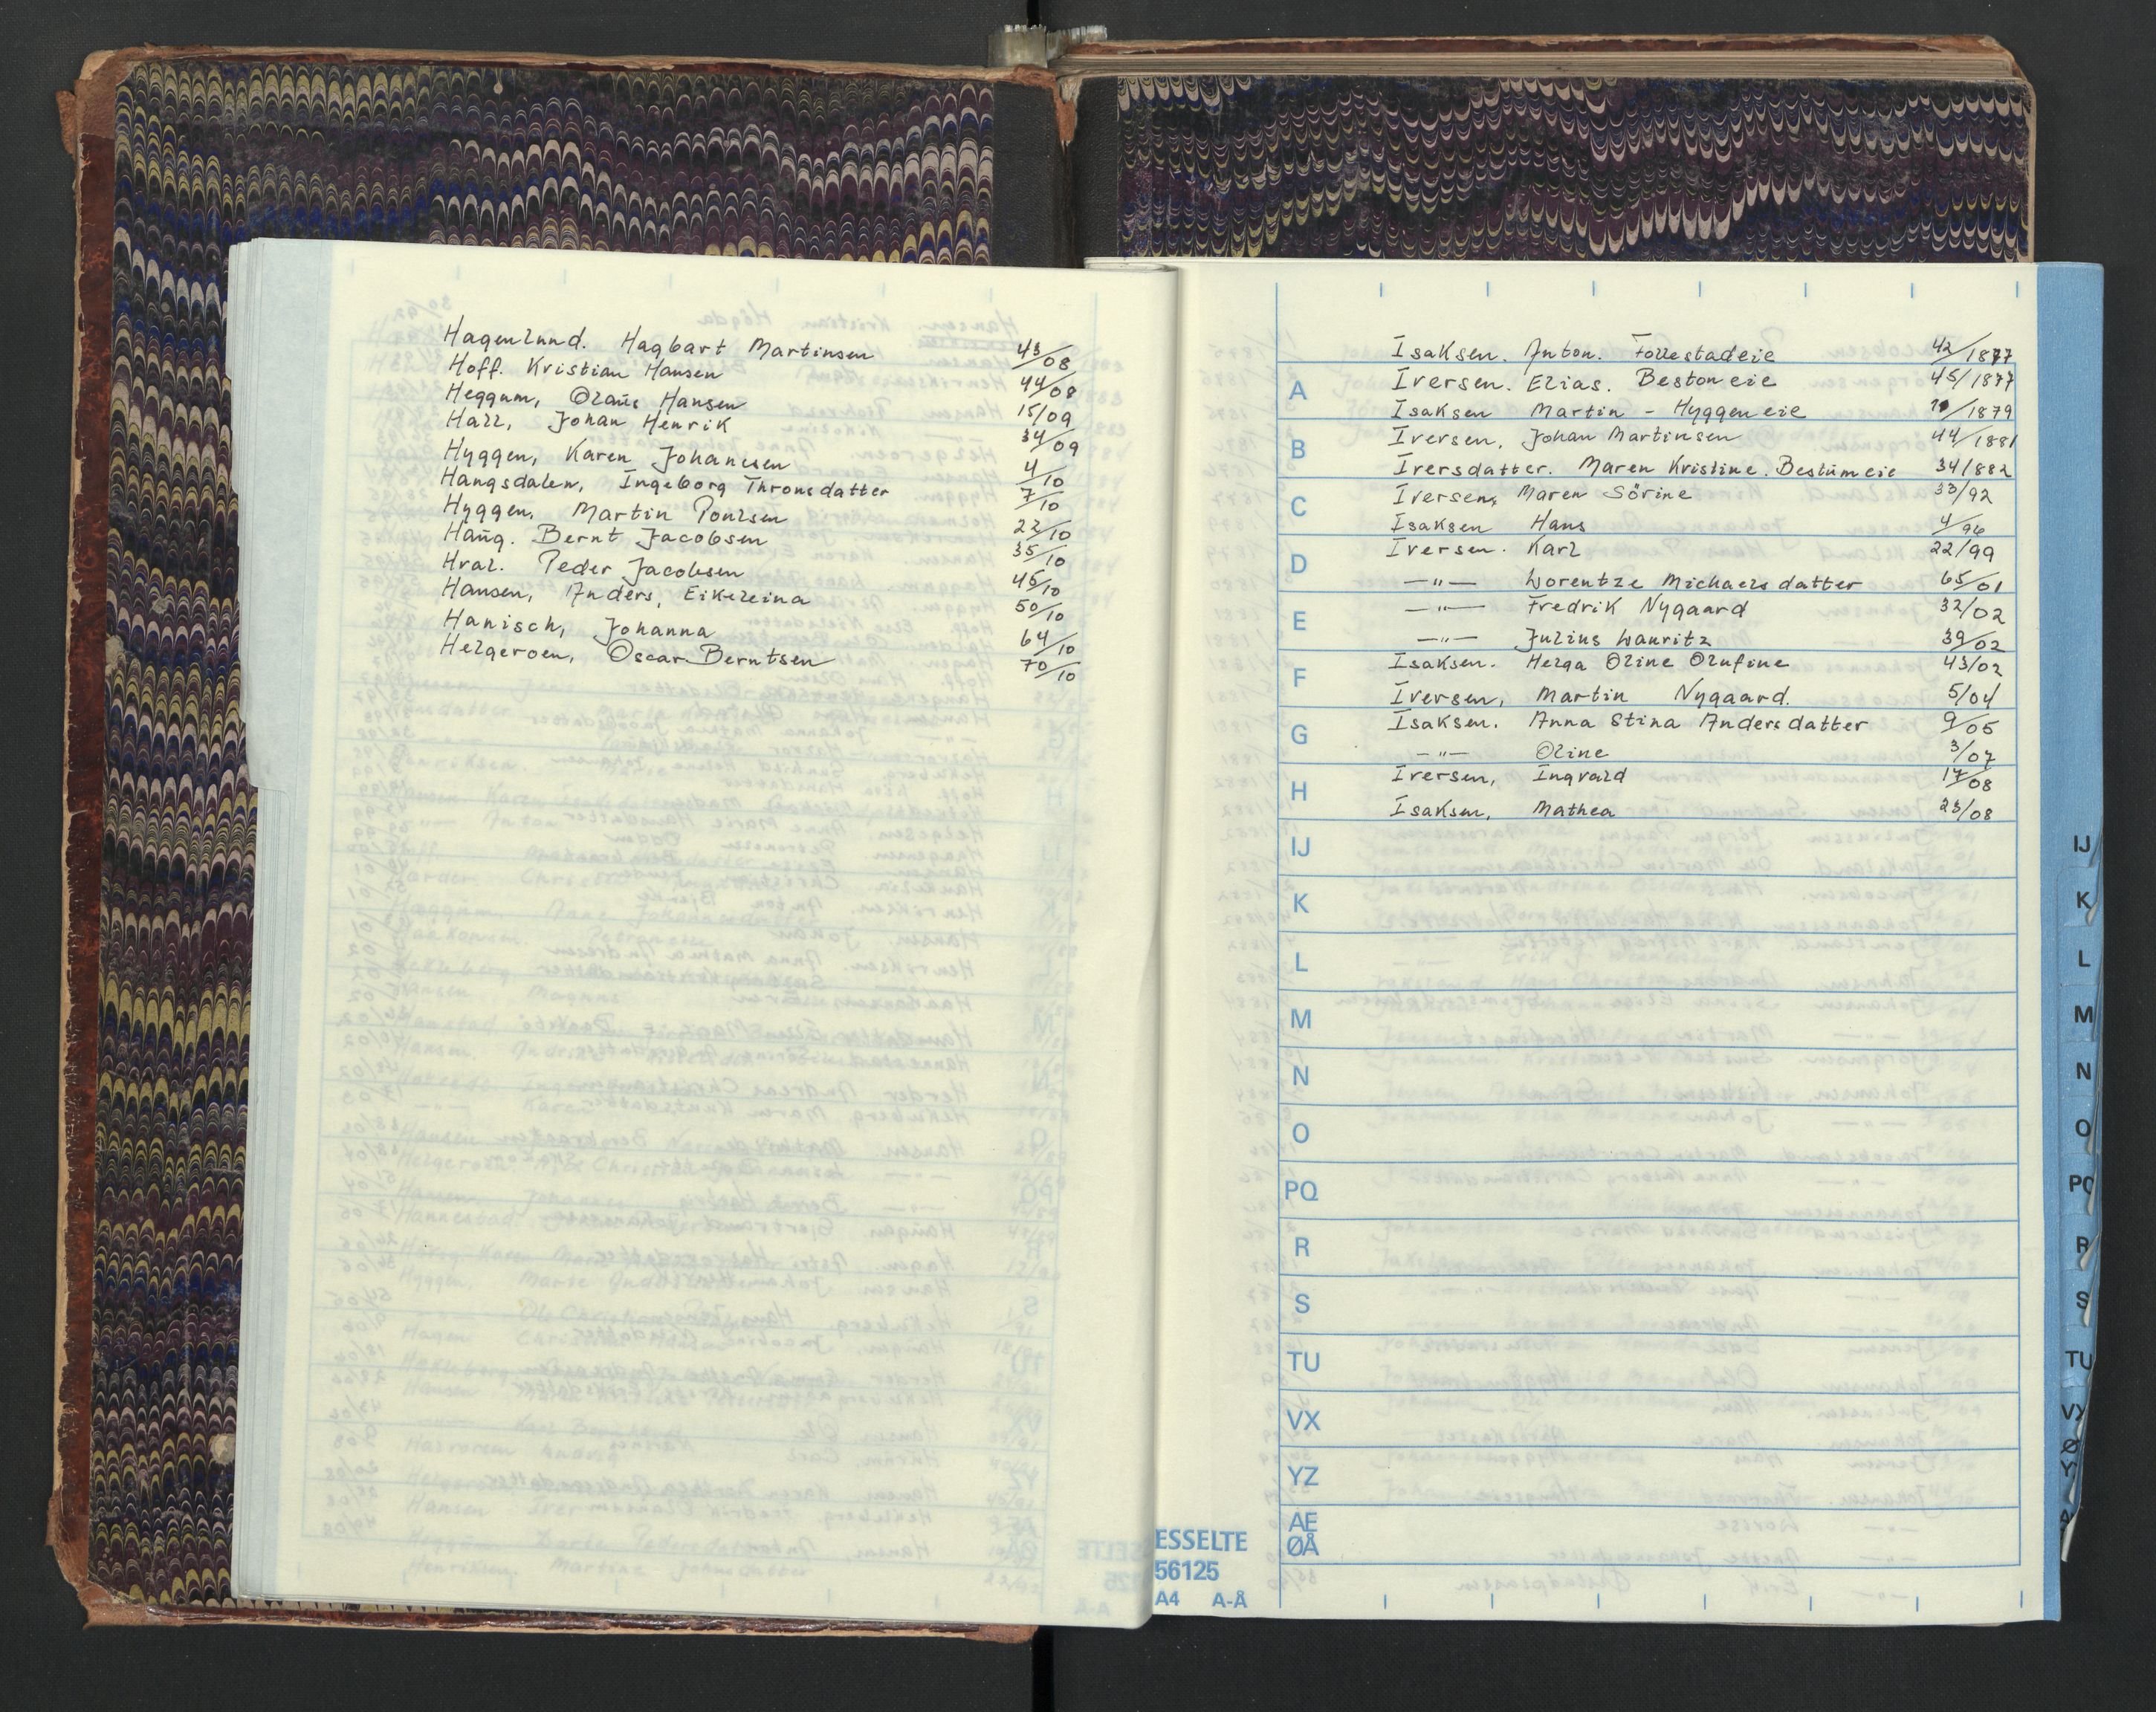 Hagenlund. Hagbart Martinsen 43/08
Hoff. Kristian Hansen 44/08
Heggum, Olaus Hansen 15/09
Hall, Johan Henrik 34/09
Hyggen, Karen Johannesen 4/10
Haugsdalen, Ingeborg Thronsdatter 7/10
Hyggen, Martin Poulsen 22/10
Haug. Bernt Jacobsen 35/10
Hval. Peder Jacobsen 45/10
Hansen, Anders, Eikeleina 50/10
Hanisch, Johanna 64/10
Helgeroen, Oscar Berntsen 70/10
Isaksen. Anton. Follestadeie 42/1877
Iversen. Elias. Bestoneie 45/1877
Isaksen Martin - Hyggeneie /1879
Iversen, Johan Martinsen 44/1881
Iversdatter. Maren Kristine. Bestumeie 34/882
Iversen, Maren Sörine 33/92
Isaksen Hans 4/96
Iversen. Karl 22/99
—"— Lorentze Michaelsdatter 65/01
—"— Fredrik Nygaard 32/02
—"— Julius Lauritz 39/02
Isaksen. Helga Oline Olufine 43/02
Iversen, Martin Nygaard. 5/04
Isaksen. Anna Stina Andersdatter 9/05
—"— Oline 3/07
Iversen, Ingvald 17/08
Isaksen, Mathea 23/08
A
B
C
D
E
F
G
H
IJ
K
L
M
N
O
PQ
R
S
TU
VX
YZ
AE
ØÅ
ESSELTE
56125
A4 A-Å
IJ
K
L
M
N
O
PQ
R
S
TU
VX